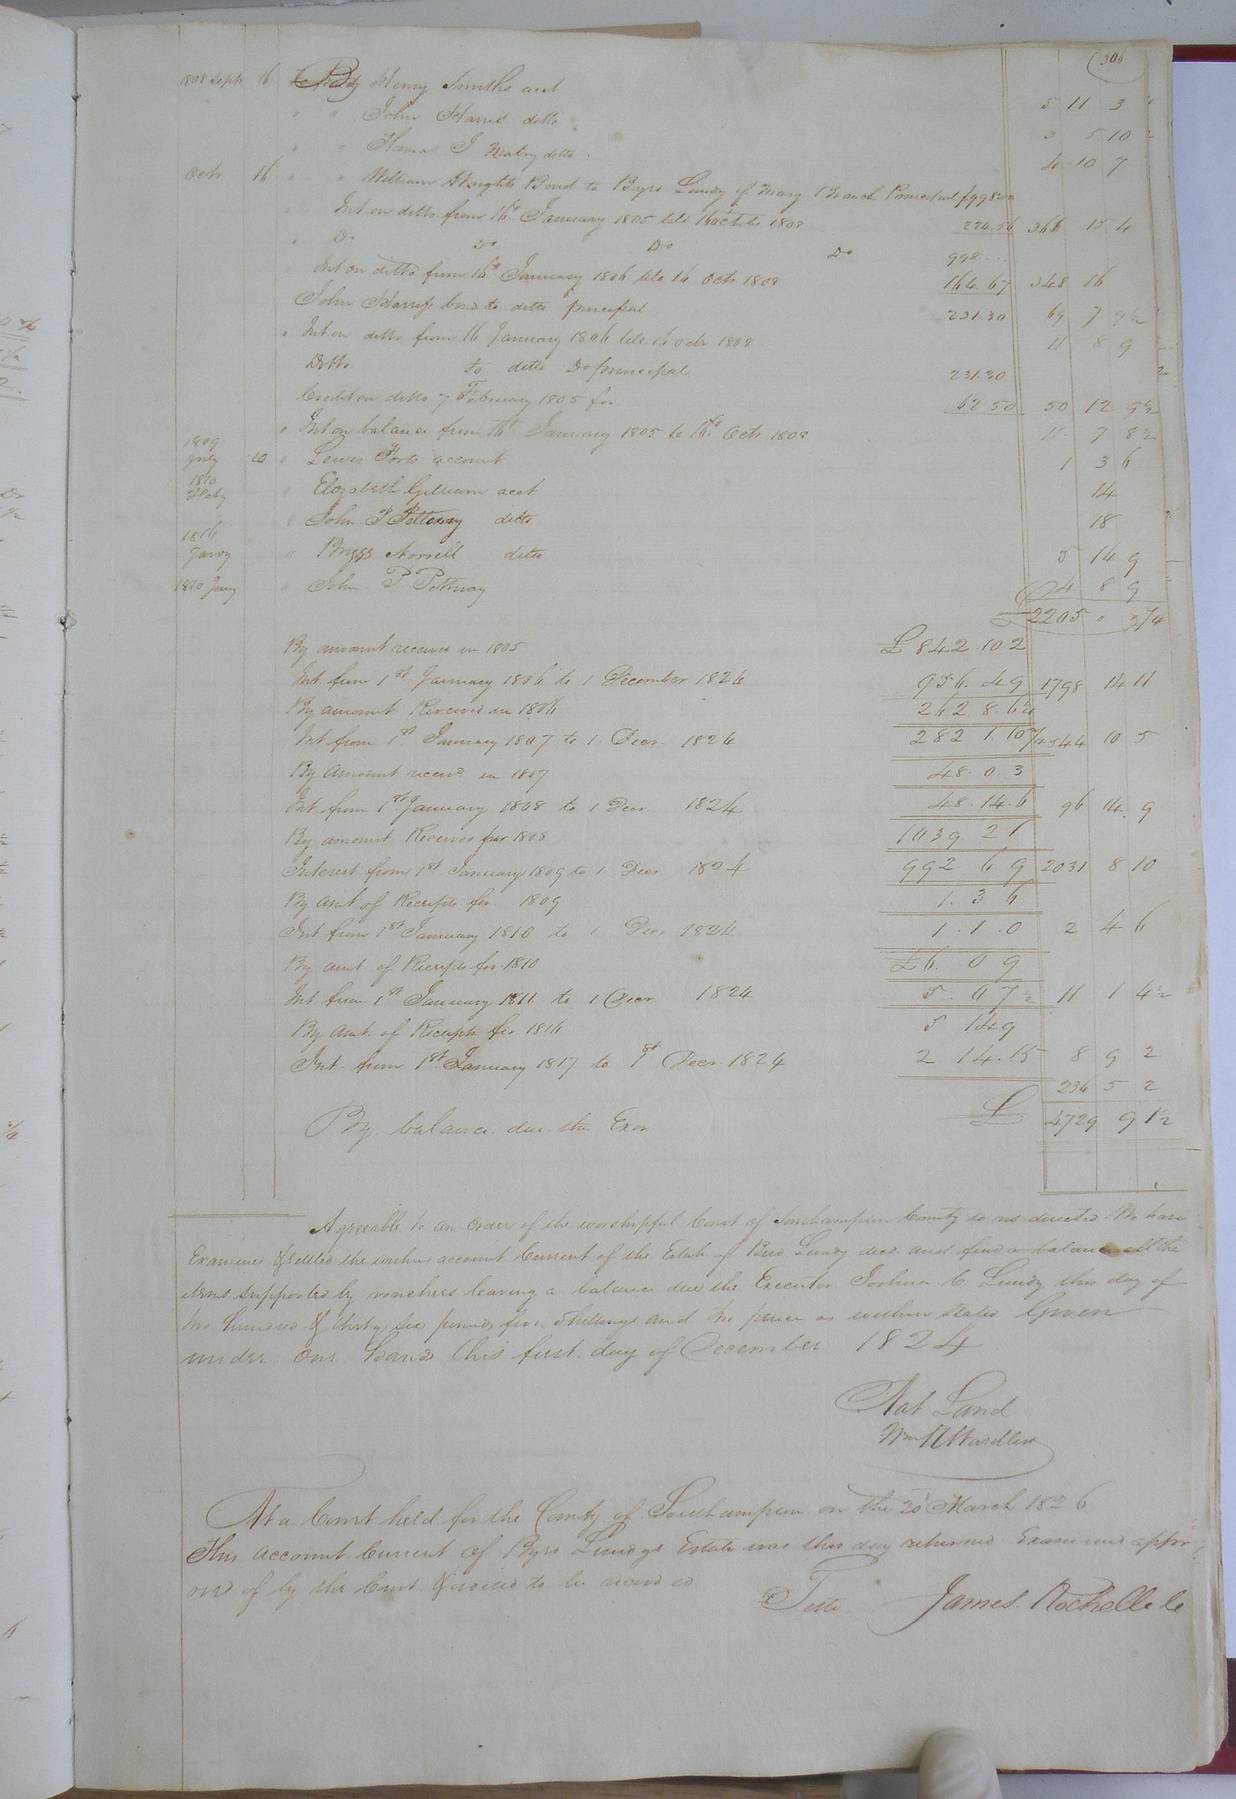 306
1808 Septr 16 By Henry Smiths acct 5 11 3
" " John Harris ditto 3 5 10
" " Thomas J Mabry ditto 4 10 7
Octr 16 " " William Knights Bond to Byrd Lundy of Mary Branch Principal $998.00
Int on ditto from 16th January 1805 till 16 Octr 1808 224.56 366 15 4
" Do Do Do Do 998
Int on ditto from 16th January 1806 till 16 Octr 1808 164.67 348 16
John Harriss bond to ditto principal 231.30 69 7 9½
" Int on ditto from 16 January 1806 till 16 Octr 1808 11 8 9
Ditto to ditto Do principal 231.30
Credit on ditto 7 February 1805 for 62.50 50 12 9½
" Int on balance from 16th January 1805 to 16th Octr 1808 11 7 8½
1809 July 20 " Lewis Forts account 1 3 6
1810 Feby " Elizabeth Gilliam acct 14
" John P Pettway ditto 18
1816 Janry " Briggs Norrell ditto 5 14 9
1810 Jany " John P. Pettway 4 8 9
2205 " 3/4
By amount received in 1805 £842.10.2
Int. from 1st January 1806 to 1 December 1824 956.4.9 1798 14 11
By amount Received in 1806 262.8.6½
Int from 1st January 1807 to 1 Decr. 1824 282 1 10 544 10 5
By amount recievd in 1807 48.0.3
Int. from 1st January 1808 to 1 Decr. 1824 48.14.6 96 14.9
By amount Receivd for 1808 1039 2 1
Interest from 1st January 1809 to 1 Decr 1824 992 6 9 2031 8 10
By amt of Receipts for 1809 1.3 6
Int. from 1st January 1810 to 1 Decr 1824 1.1.0 2 4 6
By amt. of Receipts for 1810 £6.0 9
Int from 1st January 1811 to 1 Decr 1824 5.0 7½ 11 1 4½
By Amt. of Receipts for 1816 5 14 9
Int. from 1st January 1817 to 1st Decr 1824 2 14.5 8 9 2
236 5 2
By balance due the Exor £ 4729 9 1½
Agreeable to an order of the worshipful Court of Southampton County to us directed We have
Examined & settled the within account Current of the Estate of Bird Lundy decd and find a balance all the
items supported by vouchers leaving a balance due the Executor Joshua C Lundy this day of
two hundred & thirty six pounds five shillings and two pence as within stated Given
under our hands this first day of December 1824
Nat Land
At a Court held for the County of Southampton on the 20 March 1826
This account Current of Byrd Lundys Estate was this day returned Examined appr
oved of by the Court & ordered to be recorded
Teste James Rochelle Cl